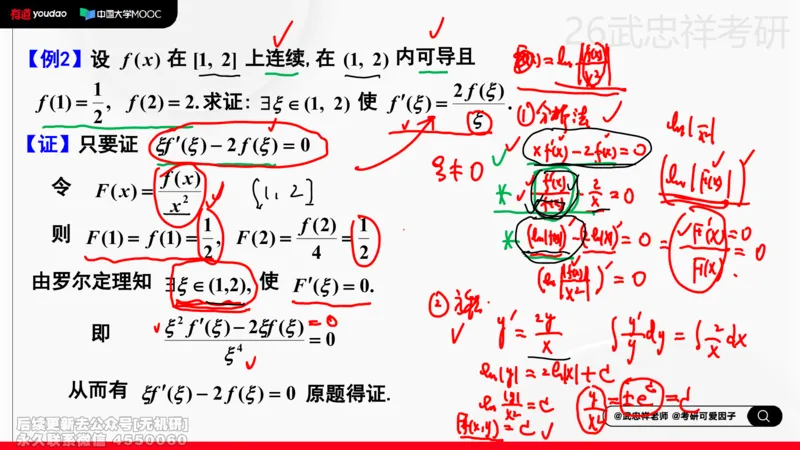 有道 youdao 中国大学MOOC
26武忠祥考研
【例2】设 f(x) 在 [1, 2] 上连续, 在 (1, 2) 内可导且
f(1) = 1/2, f(2) = 2. 求证: ∃ξ∈(1, 2) 使 f′(ξ) = 2f(ξ)/ξ.
【证】只要证 ξf′(ξ) − 2f(ξ) = 0
令 F(x) = f(x)/x² [1, 2]
则 F(1) = f(1) = 1/2, F(2) = f(2)/4 = 1/2
由罗尔定理知 ∃ξ∈(1,2), 使 F′(ξ) = 0.
即 (ξ²f′(ξ) − 2ξf(ξ))/ξ⁴ = 0
= 0
从而有 ξf′(ξ) − 2f(ξ) = 0 原题得证.
ξ ≠ 0
= ln|f(x)/x²|
① 分析法
xf′(x) − 2f(x) = 0
f′(x)/f(x) − 2/x = 0
(ln|f(x)|)′ − 2(ln|x|)′ = 0
(ln|f(x)/x²|)′ = 0
ln|F(x)|
= F′(x)/F(x) = 0
F′(x) = 0
② 方程
y′ = 2y/x
∫ y′/y dy = ∫ 2/x dx
ln|y| = 2ln|x| + C
ln |y|/x² = C
y/x² = ±eᶜ = C
F(x,y) = C
@武忠祥老师 @考研可爱因子
后续更新去公众号[无机研]
永久联系微信 4550060